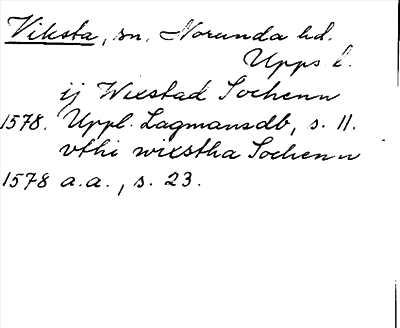 Viksta, sn. Norunda hd.
Upps. l.
ij Wixstad Sochenn
1578. Uppl. Lagmansdb, s. 11.
vthi wixstha Sochenn
1578 a.a., s. 23.